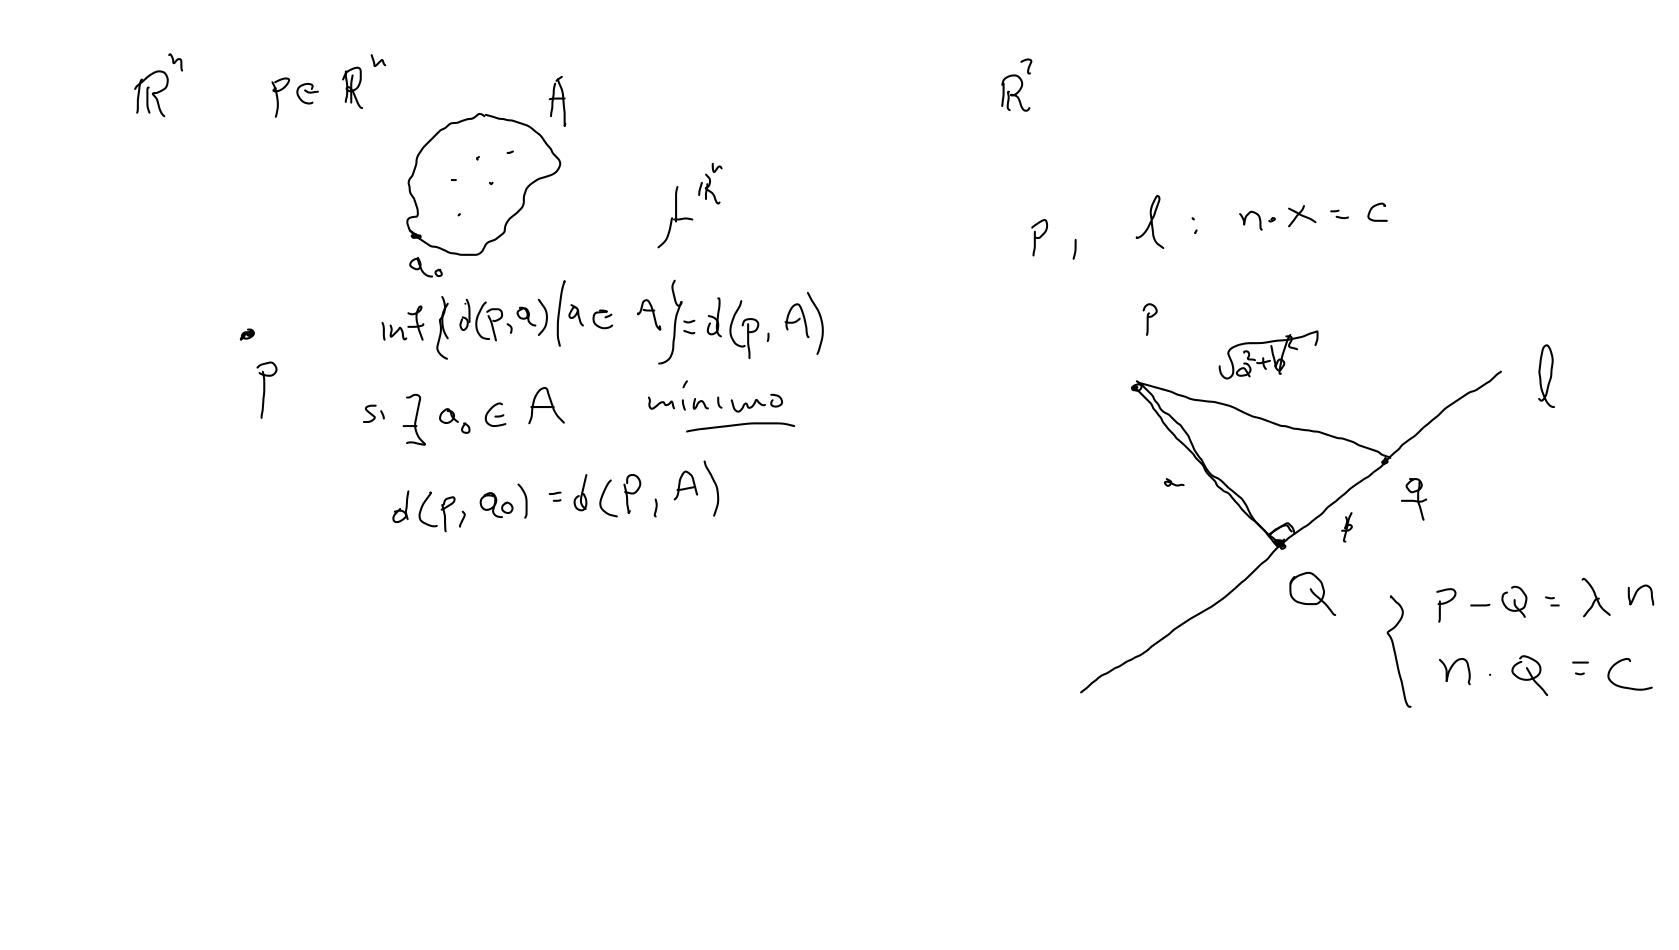 ℝⁿ p ∈ ℝⁿ
A
ℝⁿ
a₀
inf{d(p,a) | a ∈ A} = d(p, A)
p
si ∃ a₀ ∈ A mínimo
d(p, a₀) = d(p, A)
ℝ²
p, l : n · x = c
p
√a²+b²
l
a
q
b
Q
{ p − Q = λ n
n · Q = c